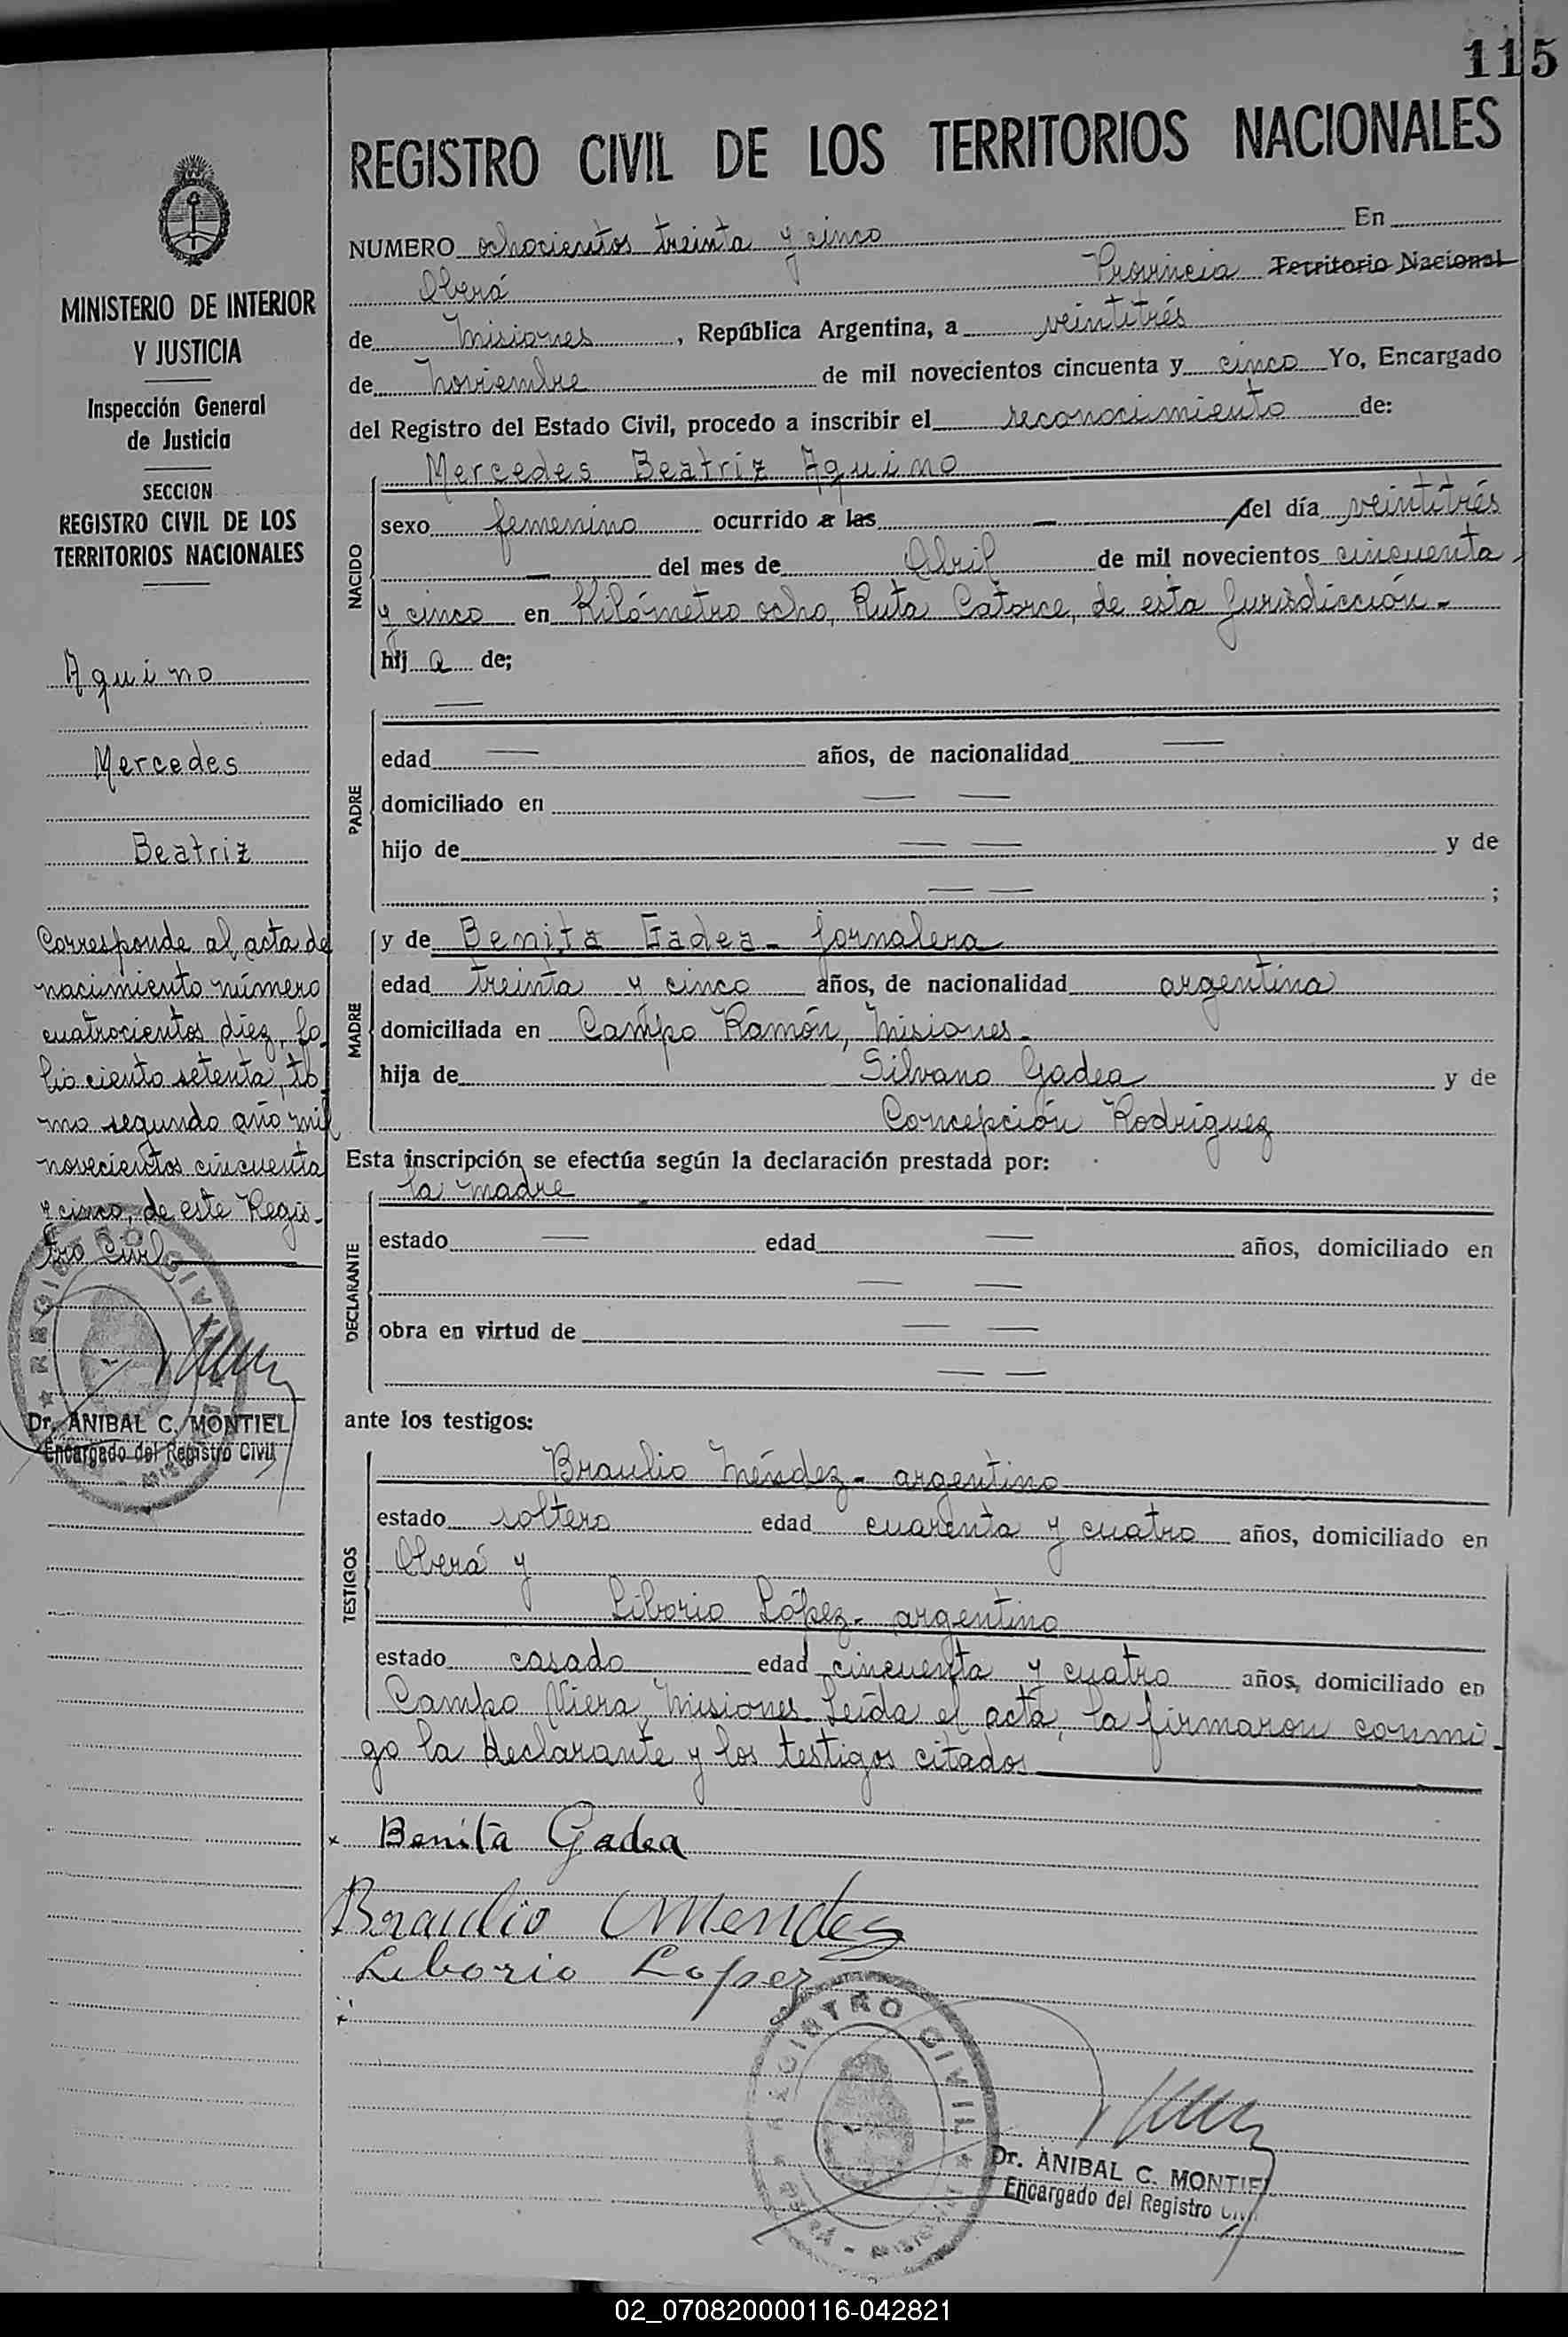 115
REGISTRO CIVIL DE LOS TERRITORIOS NACIONALES
NUMERO ochocientos treinta y cinco En
Oberá Provincia Territorio Nacional
de Misiones, República Argentina, a veintitrés
de Noviembre de mil novecientos cincuenta y cinco Yo, Encargado
del Registro del Estado Civil, procedo a inscribir el reconocimiento de:
NACIDO
Mercedes Beatriz Aquino
sexo femenino ocurrido a las — del día veintitrés
— del mes de Abril de mil novecientos cincuenta
y cinco en Kilómetro ocho, Ruta Catorce, de esta Jurisdicción.-
hij a de;
PADRE
—
edad — años, de nacionalidad —
domiciliado en — —
hijo de — — y de
— — ;
MADRE
y de Benita Gadea - Jornalera
edad treinta y cinco años, de nacionalidad argentina
domiciliada en Campo Ramón, Misiones.-
hija de Silvano Gadea y de
Concepción Rodriguez
Esta inscripción se efectúa según la declaración prestada por:
DECLARANTE
la madre
estado — edad — años, domiciliado en
— —
obra en virtud de — —
— —
ante los testigos:
TESTIGOS
Braulio Méndez - argentino
estado soltero edad cuarenta y cuatro años, domiciliado en
Oberá y
Liborio López - argentino
estado casado edad cincuenta y cuatro años, domiciliado en
Campo Viera, Misiones. Leída el acta, la firmaron conmi-
go la declarante y los testigos citados
x Benita Gadea
Braulio Mendez
Liborio Lopez
x
REGISTRO CIVIL
OBERÁ - MISIONES
Dr. ANIBAL C. MONTIEL
Encargado del Registro Civil
MINISTERIO DE INTERIOR
Y JUSTICIA
Inspección General
de Justicia
SECCION
REGISTRO CIVIL DE LOS
TERRITORIOS NACIONALES
Aquino
Mercedes
Beatriz
Corresponde al acta de
nacimiento número
cuatrocientos diez, fo-
lio ciento setenta, to-
mo segundo año mil
novecientos cincuenta
y cinco, de este Regis-
tro Civil
REGISTRO CIVIL
Dr. ANIBAL C. MONTIEL
Encargado del Registro Civil
02_070820000116-042821